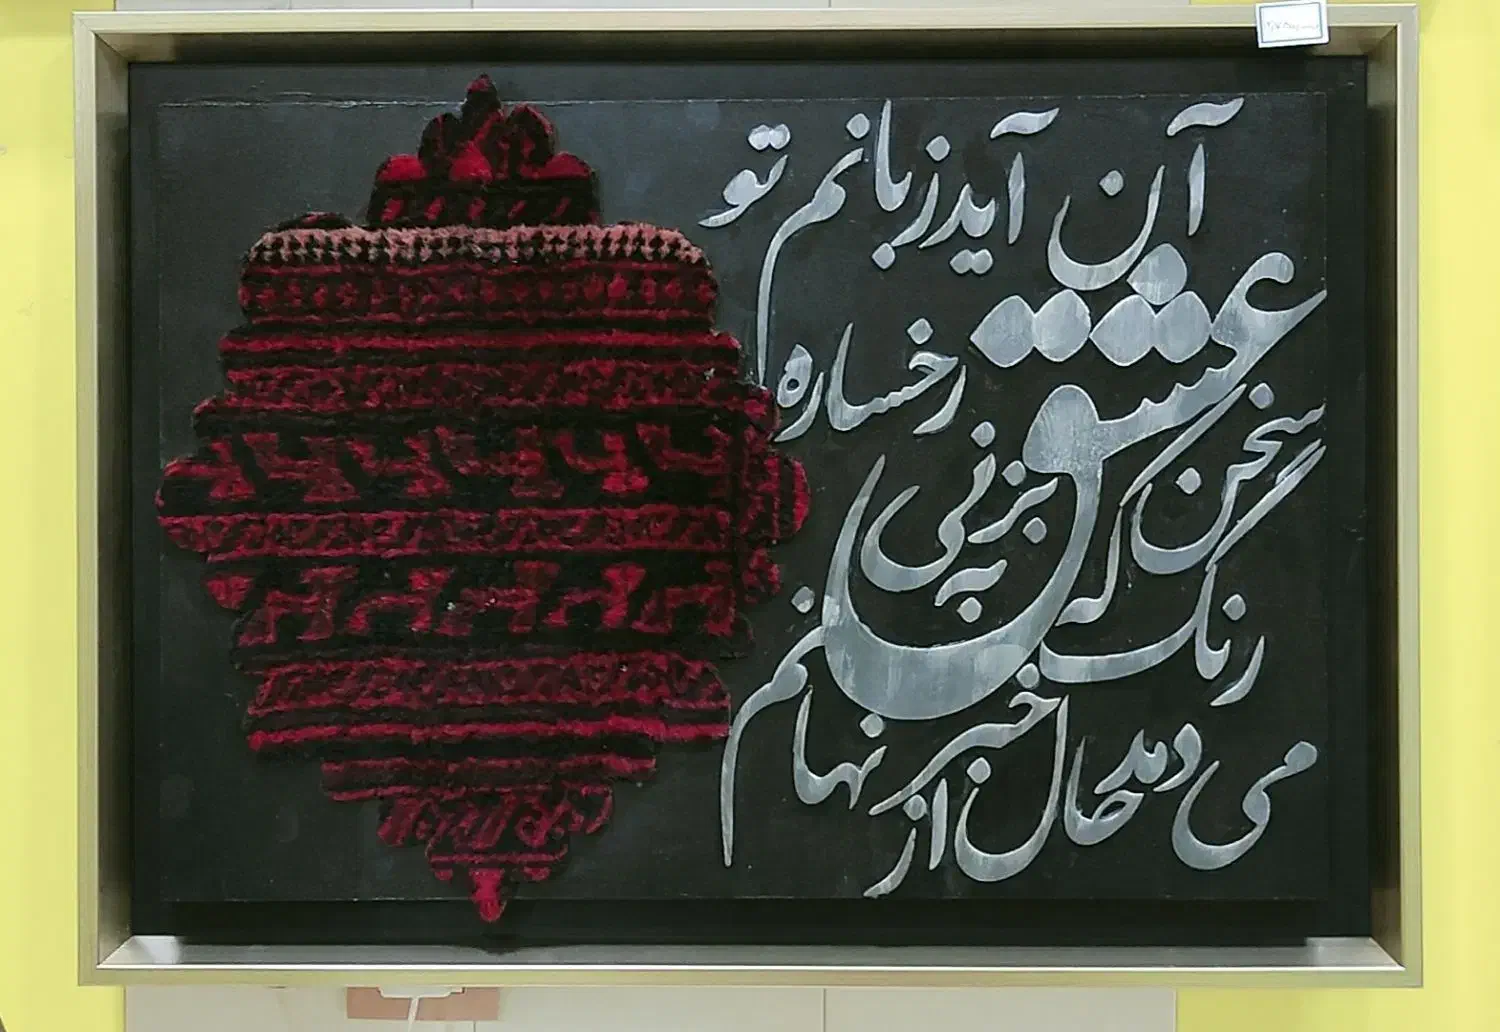 سخن عشق تو بی آن که برآید به زبانم
رنگ رخساره خبر می دهد از حال نهانم